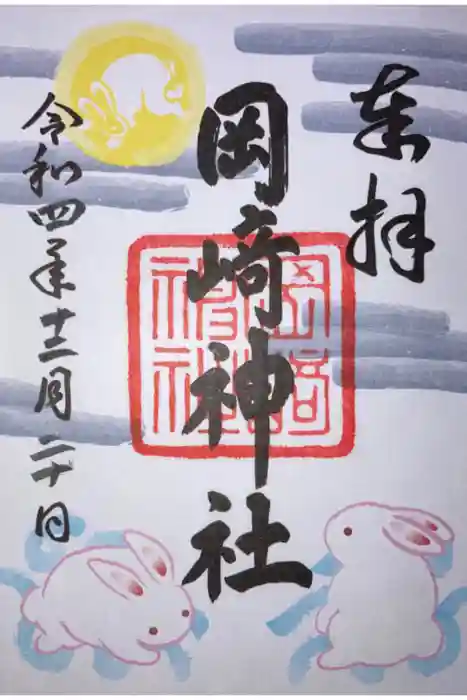 奉拝
岡崎神社
岡崎神社
令和四年十二月二十日